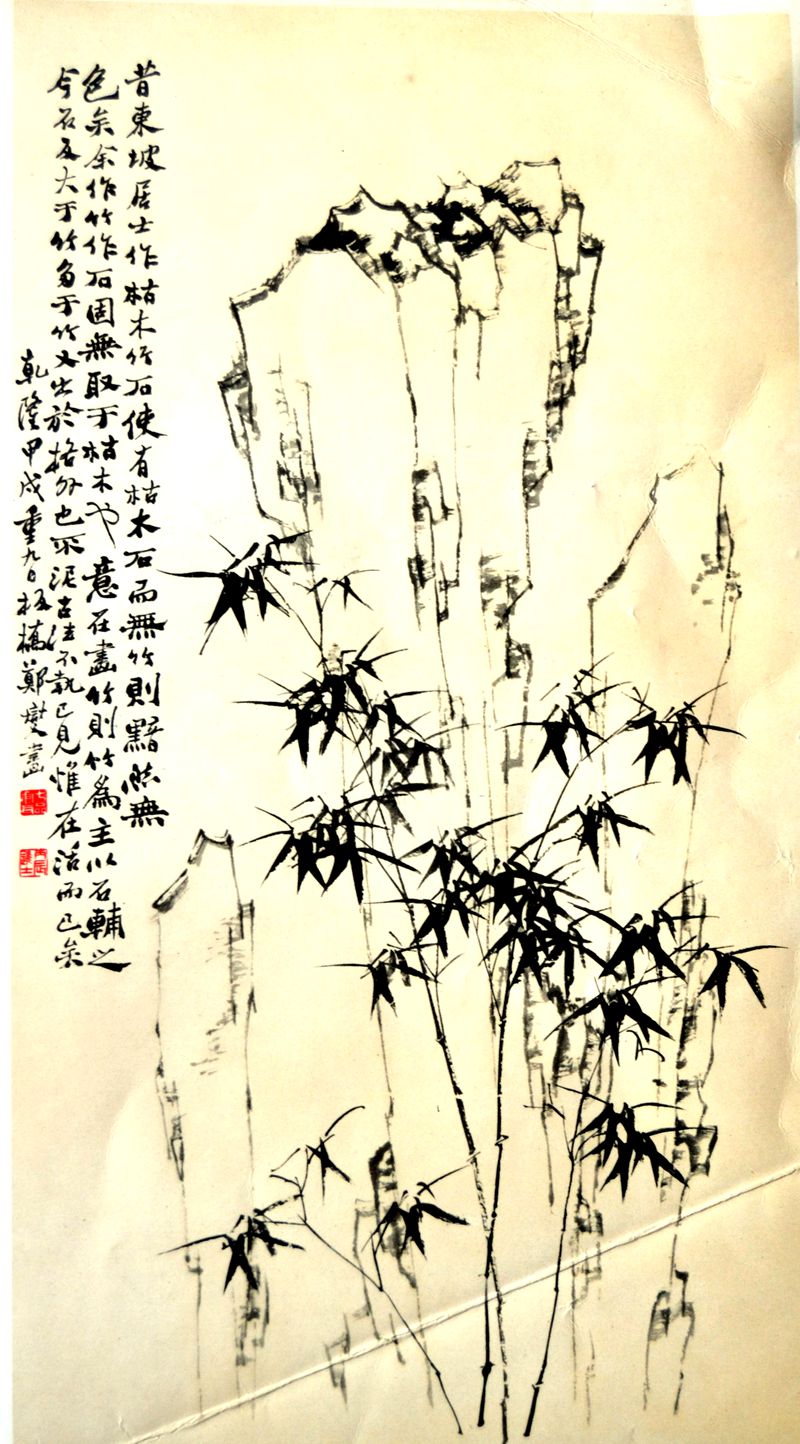 昔東坡居士作枯木竹石使有枯木石而無竹則黯然無
色矣余作竹作石固無取于枯木也意在畫竹則竹為主以石輔之
今石反大于竹多于竹又出於格外也不泥古法不執己見惟在活而已矣
乾隆甲戌重九日板橋鄭燮畫